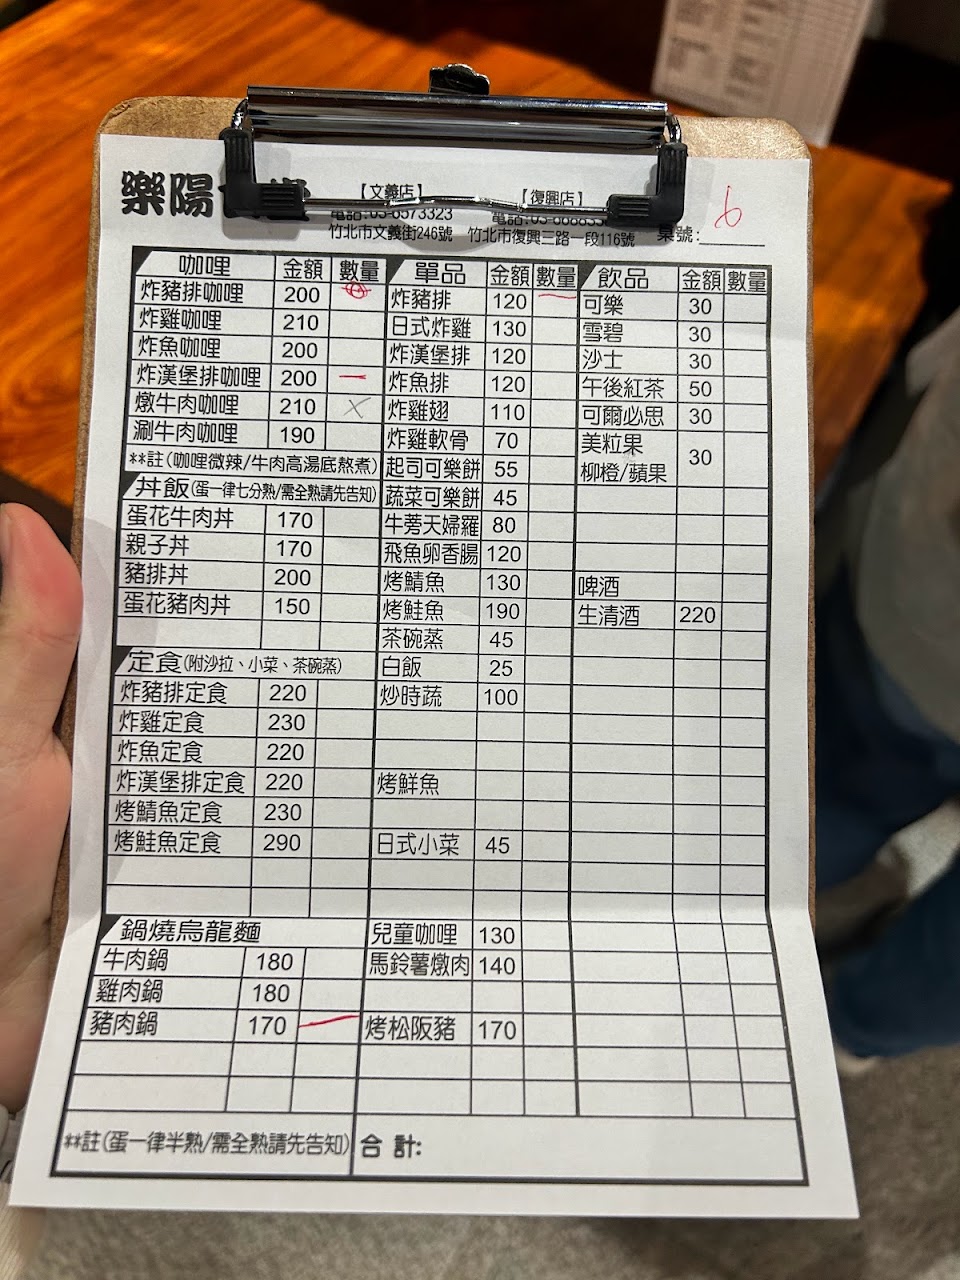 樂陽
【文義店】 【復興店】
電話:03-6573323 電話:03-6688
竹北市文義街246號 竹北市復興三路一段116號 桌號: 6
咖哩 金額 數量 單品 金額 數量 飲品 金額 數量
炸豬排咖哩 200 炸豬排 120 一 可樂 30
炸雞咖哩 210 日式炸雞 130 雪碧 30
炸魚咖哩 200 炸漢堡排 120 沙士 30
炸漢堡排咖哩 200 一 炸魚排 120 午後紅茶 50
燉牛肉咖哩 210 X 炸雞翅 110 可爾必思 30
涮牛肉咖哩 190 炸雞軟骨 70 美粒果
**註(咖哩微辣/牛肉高湯底熬煮) 起司可樂餅 55 柳橙/蘋果 30
丼飯(蛋一律七分熟/需全熟請先告知) 蔬菜可樂餅 45
蛋花牛肉丼 170 牛蒡天婦羅 80
親子丼 170 飛魚卵香腸 120
豬排丼 200 烤鯖魚 130 啤酒
蛋花豬肉丼 150 烤鮭魚 190 生清酒 220
茶碗蒸 45
定食(附沙拉、小菜、茶碗蒸) 白飯 25
炸豬排定食 220 炒時蔬 100
炸雞定食 230
炸魚定食 220
炸漢堡排定食 220 烤鮮魚
烤鯖魚定食 230
烤鮭魚定食 290 日式小菜 45
鍋燒烏龍麵 兒童咖哩 130
牛肉鍋 180 馬鈴薯燉肉 140
雞肉鍋 180
豬肉鍋 170 一 烤松阪豬 170
**註(蛋一律半熟/需全熟請先告知) 合 計: